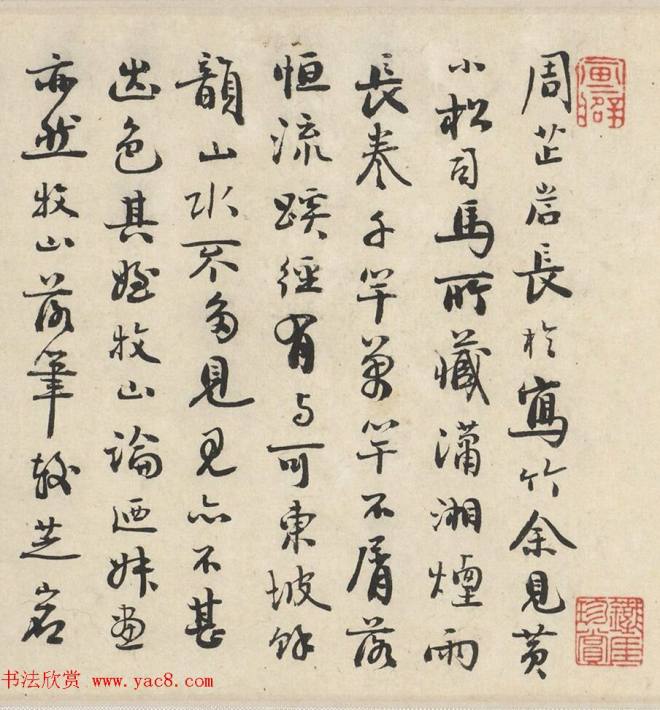 周芷岩長於寫竹余見黄
小松司馬所藏瀟湘煙雨
長卷千竿萬竿不屑落
恒流蹊徑有与可東坡餘
韻山水不多見見亦不甚
出色其姪牧山論迺畫
亦然牧山落筆較芝岩
书法欣赏 www.yac8.com